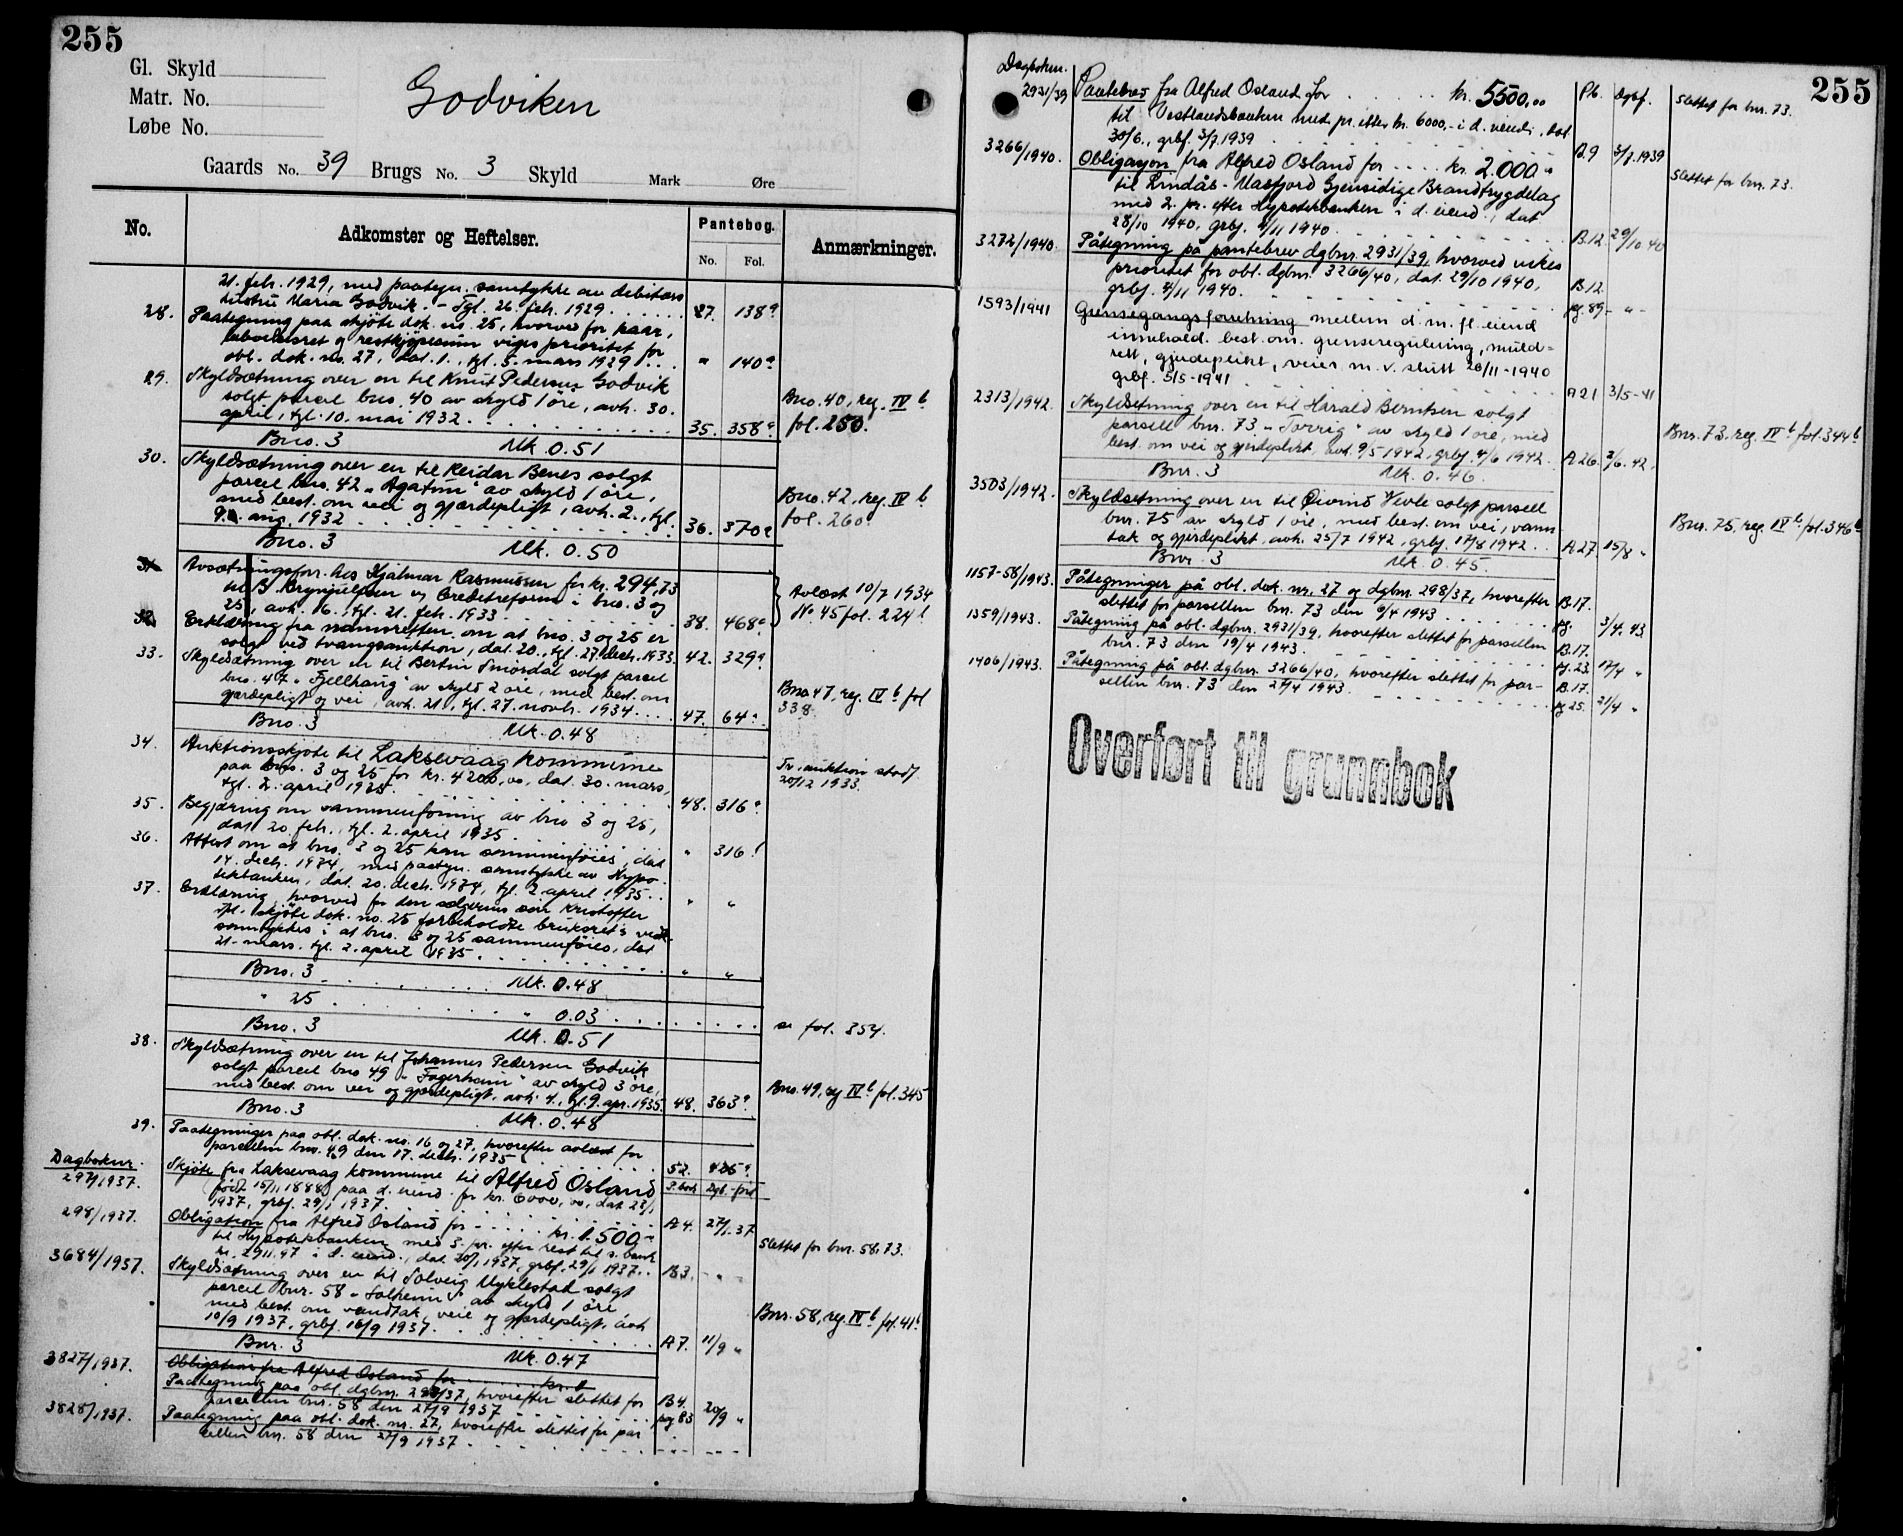 255
Gl. Skyld
Matr. No.
Løbe No.
Godviken
Gaards No. 39 Brugs No. 3 Skyld Mark Øre
No. Adkomster og Heftelser. Pantebog. No. Fol. Anmærkninger.
21. feb. 1929, med paategn. samtykke av debitors
hustru Maria Godvik. - Tgl. 26. feb. 1929 . . . . . 27. 138a
28. Paategning paa skjøte dok. no. 25, hvorved for kaar,
løsøresret og restkjøpesum viges prioritet for
obl. dok. no. 27, dat. 1., tgl. 5. mars 1929 . . . " 140a
29. Skyldsætning over en til Knut Pedersen Godvik
solgt parcel bno. 40 av skyld 1 øre, avh. 30.
april, tgl. 10. mai 1932 . . . . . . . . . 35. 358a
Bno. 40, reg. IV b
fol. 250.
Bno. 3 Mk. 0.51
30. Skyldsætning over en til Reidar Benes solgt
parcel bno. 42 „Agatun" av skyld 1 øre,
med best. om vei og gjærdepligt, avh. 2., tgl.
9. aug. 1932 . . . . . . . . . . 36. 370a
Bno. 42, reg. IV b
fol. 260.
Bno. 3 Mk. 0.50
31. Avsætningsforr. hos Hjalmar Rasmussen for kr. 294,73
til B. Brynjulfsen v/ Creditreform i bno. 3 og
25, avh. 16., tgl. 21. feb. 1933 . . . . . 38. 468a
Avlæst 10/7 1934
No 45 fol. 224 b
32. Erklæring fra namsretten om at bno. 3 og 25 er
solgt ved tvangsauktion, dat. 20., tgl. 27. decb. 1933. 42. 329a
33. Skyldsætning over en til Bertin Smørdal solgt parcel
bno. 47 „Fjellhaug" av skyld 2 øre, med best. om
gjærdepligt og vei, avh. 21., tgl. 27. novb. 1934 . . . . 47. 64a
Bno 47, reg. IV b fol
338
Bno. 3 Mk. 0.48
34. Auktionsskjøte til Laksevaag kommune
paa bno. 3 og 25 for kr. 4200,00, dat. 30. mars,
tgl. 2. april 1935 . . . . . . . . 48. 316a
Tv. auktion avh
20/12 1933.
35. Begjæring om sammenføining av bno 3 og 25,
dat. 20. feb., tgl. 2. april 1935 . . . . . " 316b
36. Attest om at bno. 3 og 25 kan sammenføies, dat
14. decb. 1934, med paategn. samtykke av Hypo-
tekbanken, dat. 20. decb. 1934, tgl. 2. april 1935 . . " "
37. Erklæring, hvorved for den sælgerens søn Kristoffer
ifl. skjøte dok. no. 25 forbeholdte bruksret
samtykkes i at bno. 3 og 25 sammenføies, dat
21. mars, tgl. 2. april 1935 . . . . . . . " "
Bno. 3 . . . . . . . Mk. 0.48
" 25 . . . . . . . " 0.03 . . . . . . .
Bno. 3 Mk. 0.51
se fol. 354.
38. Skyldsætning over en til Johannes Pedersen Godvik
solgt parcel bno 49 „Fagerheim" av skyld 3 øre,
med best. om vei og gjærdepligt, avh. 4., tgl. 9. apr. 1935. 48. 363a
Bno. 49, reg IV b fol. 345
Bno. 3 Mk. 0.48
39. Paategninger paa obl. dok. no. 16 og 27, hvorefter avlæst for
parcellen bno. 49 den 17. decb. 1935 . . . . . . 52. 426a
Dagboknr. P.bok Dgb.ført
297/1937. Skjøte fra Laksevaag kommune til Alfred Osland
født 15/11 1888, paa d. eiend. for kr. 6000,00, dat 23/1
1937, grbf. 29/1 1937 . . . . . . . . A4. 27/1. 37
298/1937. Obligation fra Alfred Osland for . . . . . kr. 1500,-
til Hypotekbanken med 3. pr. efter rest til s. bank
kr. 2911.47 i d. eiend., dat. 20/1 1937, grbf. 29/1 1937. . B3. - " -
Slettet for bnr. 58, 73.
3684/1937. Skyldsætning over en til Solveig Myklestad solgt
parcel bnr. 58 „Solheim" av skyld 1 øre
med best. om vandtak, veie og gjærdepligt, avh
10/9 1937, grbf. 16/9 1937 . . . . . . . A7. 11/9 "
Bnr. 58, reg IV b fol. 41 b
Bnr. 3 Mk. 0.47
3827/1937. Obligation fra Alfred Osland for . . . . kr.
Paategning paa obl. dgbnr. 298/37, hvorefter slettet for
parcellen bnr. 58 den 21/9 1937 . . . . . . B4. pg 83 20/9 "
3828/1937. Paategning paa obl. dok. nr. 27, hvorefter slettet for par
cellen bnr. 58 den 21/9 1937 . . . . . . . - " - - " -
255
Dagboknr. P.b. Dgbf.
2931/39 Pantebrev fra Alfred Osland for . . . . . kr. 5500,00
til Vestlandsbanken med pr. efter kr. 6000,- i d. eiend., dat
30/6., grbf. 3/7 1939 . . . . . . . . . B.9 3/7. 1939
slettet for bnr. 73.
3266/1940. Obligasjon fra Alfred Osland for . . . . kr. 2.000,-
til Lindås-Masfjord Gjensidige Brandtrygdelag
med 2. pr. efter Hypotekbanken i d. eiend., dat
28/10 1940, grbf. 4/11 1940 . . . . . . . . B.12. 29/10 40
slettet for bnr. 73.
3272/1940. Påtegning på pantebrev dgbnr. 2931/39, hvorved vikes
prioritet for obl. dgbnr. 3266/40, dat. 29/10 1940,
grbf. 4/11 1940. . . . . . . . . . B.12. pg. 89 - " -
1593/1941 Grensegangsforretning mellem d. m. fl. eiend
innehold. best. om. grenseregulering, muld-
rett, gjerdeplikt, veier m. v. slutt 26/11-1940
grbf. 5/5-1941 . . . . . . . . . A21 3/5-41
2313/1942. Skyldsetning over en til Harald Berntsen solgt
parsell bnr. 73 „Torrig" av skyld 1 øre, med
best. om vei og gjerdeplikt, avh. 9/5 1942, grbf. 4/6 1942 . A26. 2/6. 42.
Bnr. 73, reg. IV b fol. 344 b
Bnr. 3 Mk. 0.46.
3503/1942. Skyldsetning over en til Øivind Vevle solgt parsell
bnr. 75 av skyld 1 øre, med best. om vei, vann
tak og gjerdeplikt, avh. 25/7 1942, grbf. 17/8 1942 . . A27. 15/8 "
Bnr. 75, reg. IV b fol. 346 b
Bnr. 3 Mk. 0.45.
1157-58/1943. Påtegninger på obl. dok. nr. 27 og dgbnr. 298/37, hvorefter
slettet for parsellen bnr. 73 den 6/4 1943 . . . . . B.17. pg. 3/4. 43.
1359/1943. Påtegning på obl. dgbnr. 2931/39, hvorefter slettet for parsellen
bnr. 73 den 19/4 1943 . . . . . . . . . B.17. pg. 23. 17/4 "
1406/1943. Påtegning på obl. dgbnr. 3266/40, hvorefter slettet for par-
sellen bnr. 73 den 27/4 1943 . . . . . . . . B.17. pg 25. 21/4 "
Overført til grunnbok